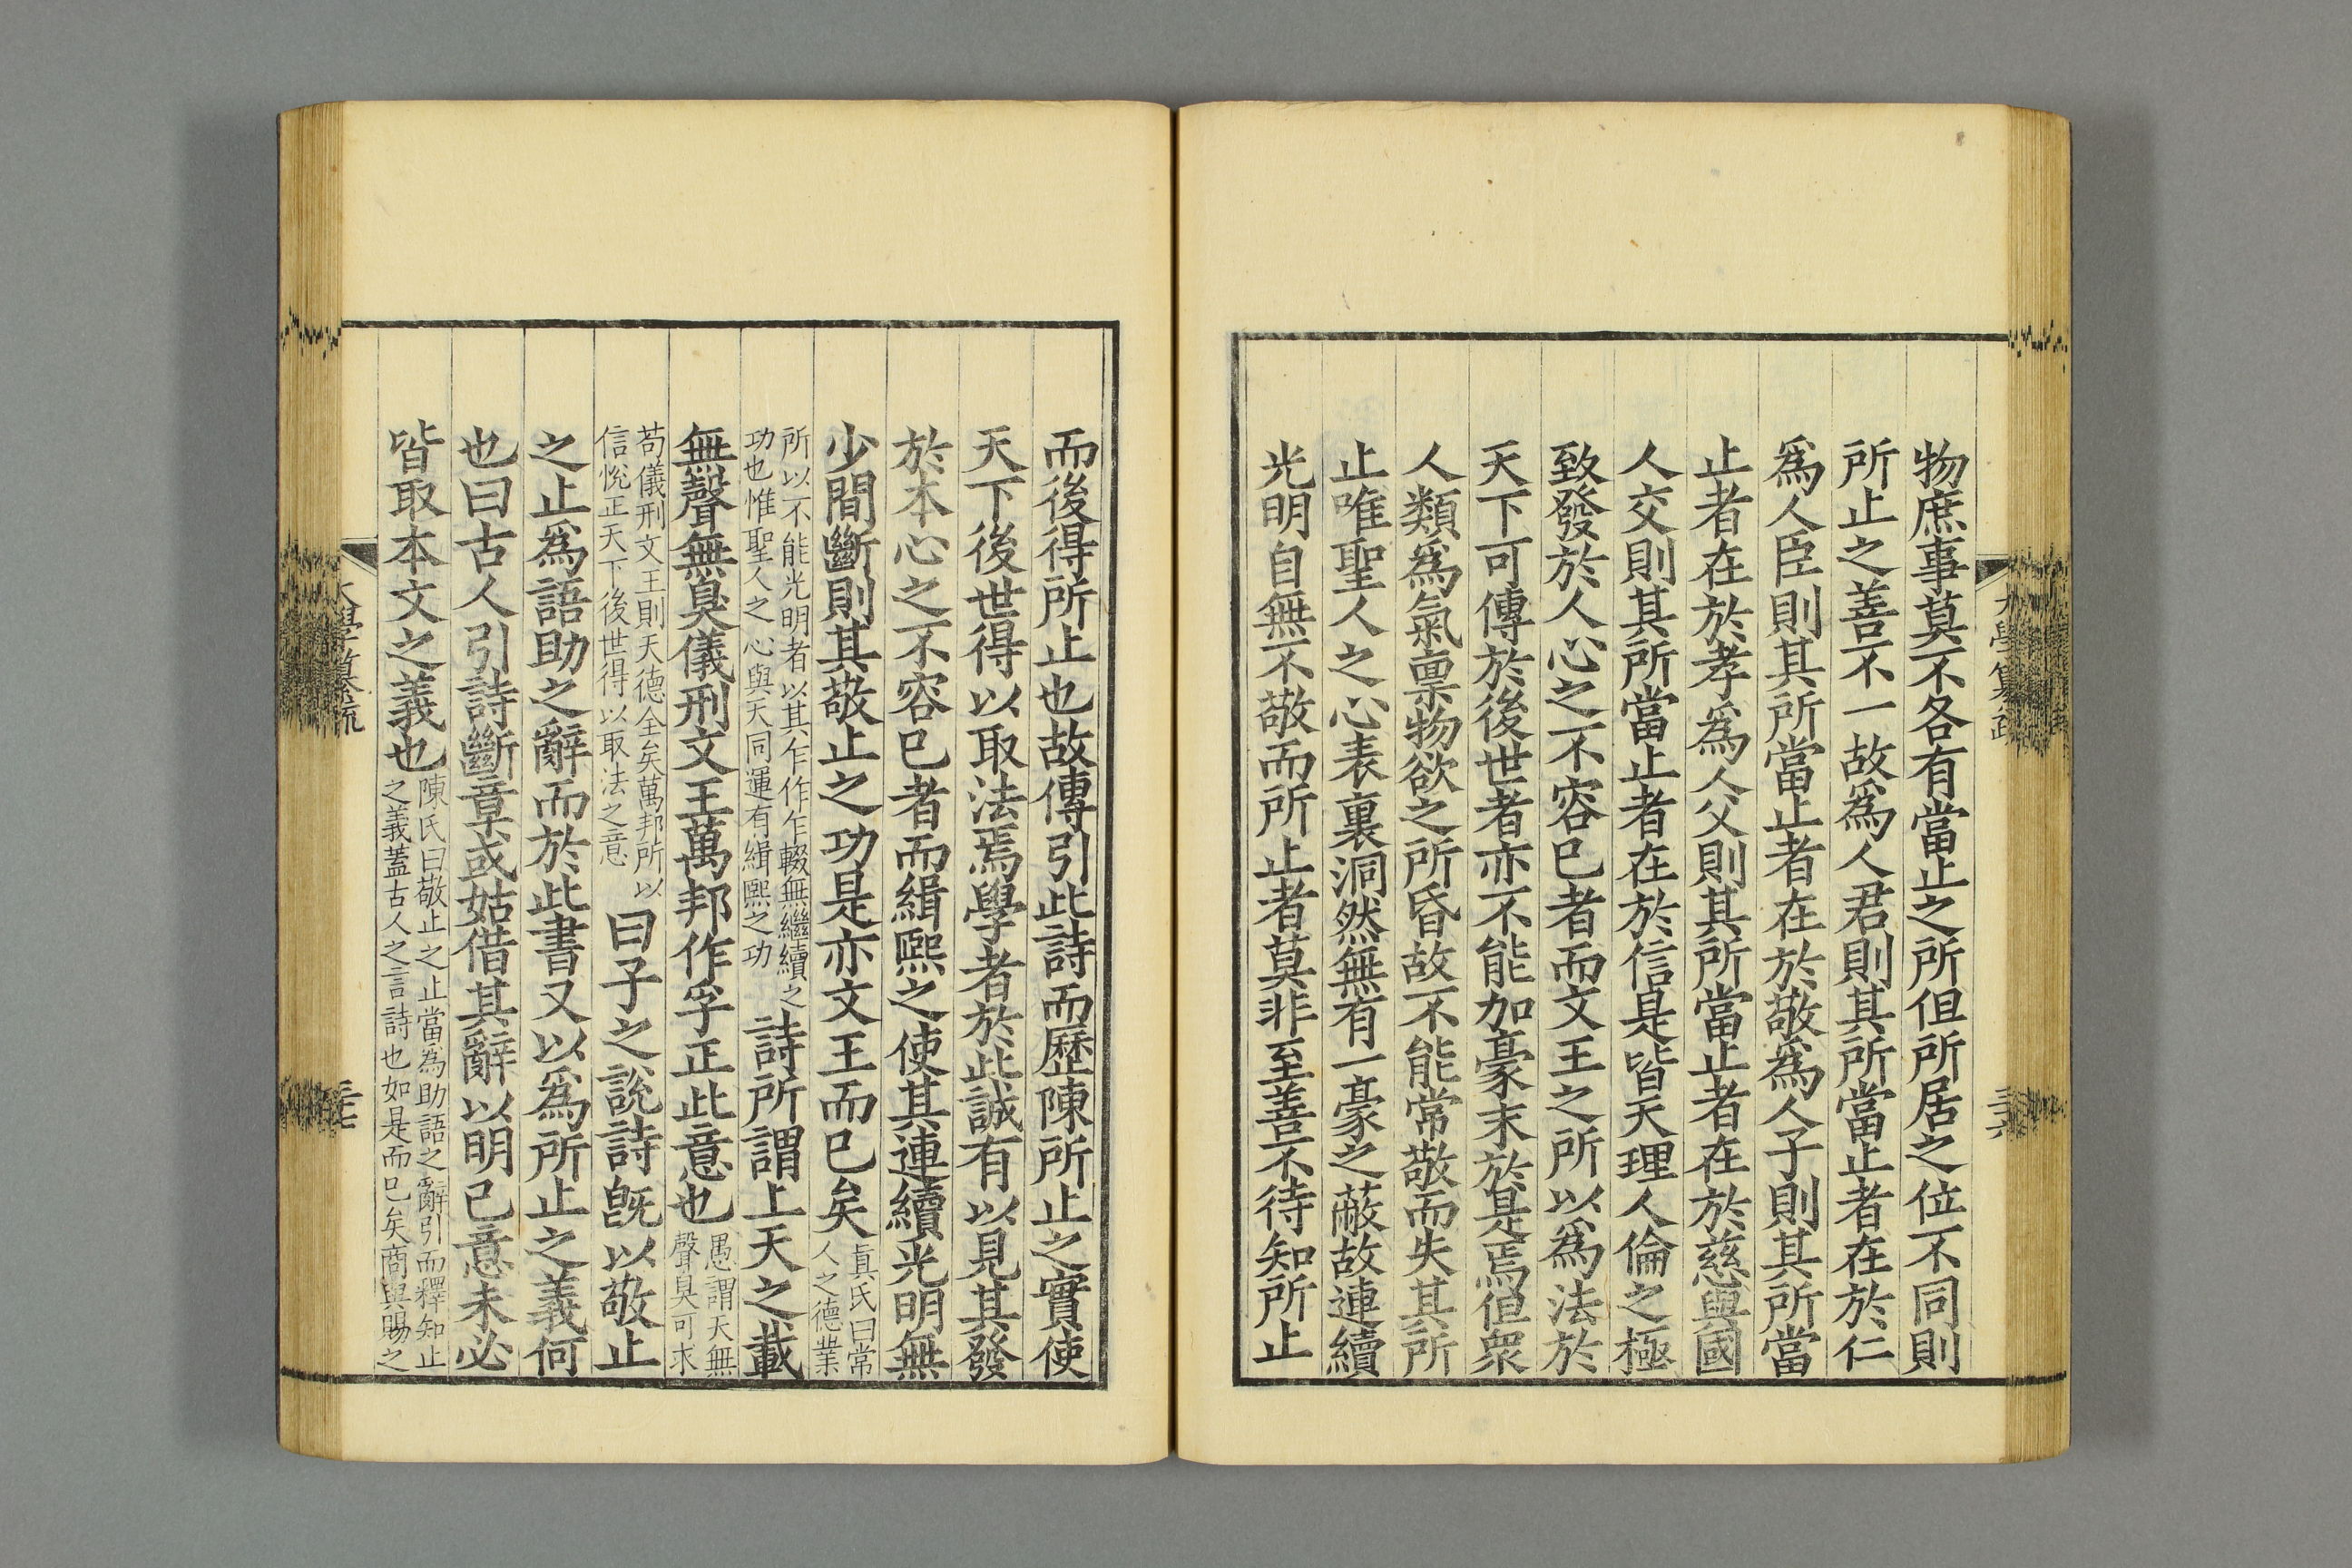 物庶事莫不各有當止之所但所居之位不同則
所止之善不一故爲人君則其所當止者在於仁
爲人臣則其所當止者在於敬爲人子則其所當
止者在於孝爲人父則其所當止者在於慈與國
人交則其所當止者在於信是皆天理人倫之極
致發於人心之不容已者而文王之所以爲法於
天下可傳於後世者亦不能加豪末於是焉但衆
人類爲氣禀物欲之所昏故不能常敬而失其所
止唯聖人之心表裏洞然無有一豪之蔽故連續
光明自無不敬而所止者莫非至善不待知所止
而後得所止也故傳引此詩而歷陳所止之實使
天下後世得以取法焉學者於此誠有以見其發
於本心之不容已者而緝熙之使其連續光明無
少間斷則其敬止之功是亦文王而已矣
眞氏曰常
人之德業
所以不能光明者以其乍作乍輟無繼續之
功也惟聖人之心與天同運有緝熙之功
詩所謂上天之載
無聲無臭儀刑文王萬邦作孚正此意也
愚謂天無
聲臭可求
苟儀刑文王則天德全矣萬邦所以
信悅正天下後世得以取法之意
曰子之說詩旣以敬止
之止爲語助之辭而於此書又以爲所止之義何
也曰古人引詩斷章或姑借其辭以明己意未必
皆取本文之義也
陳氏曰敬止之止當為助語之辭引而釋知止
之義蓋古人之言詩也如是而已矣商與賜之